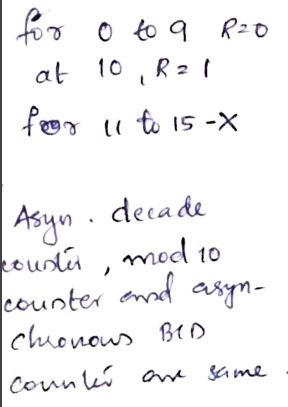 for 0 to 9 R=0
at 10, R=1
for 11 to 15 -X
Asyn. decade
counter, mod 10
counter and asyn-
chronous BCD
counter are same.